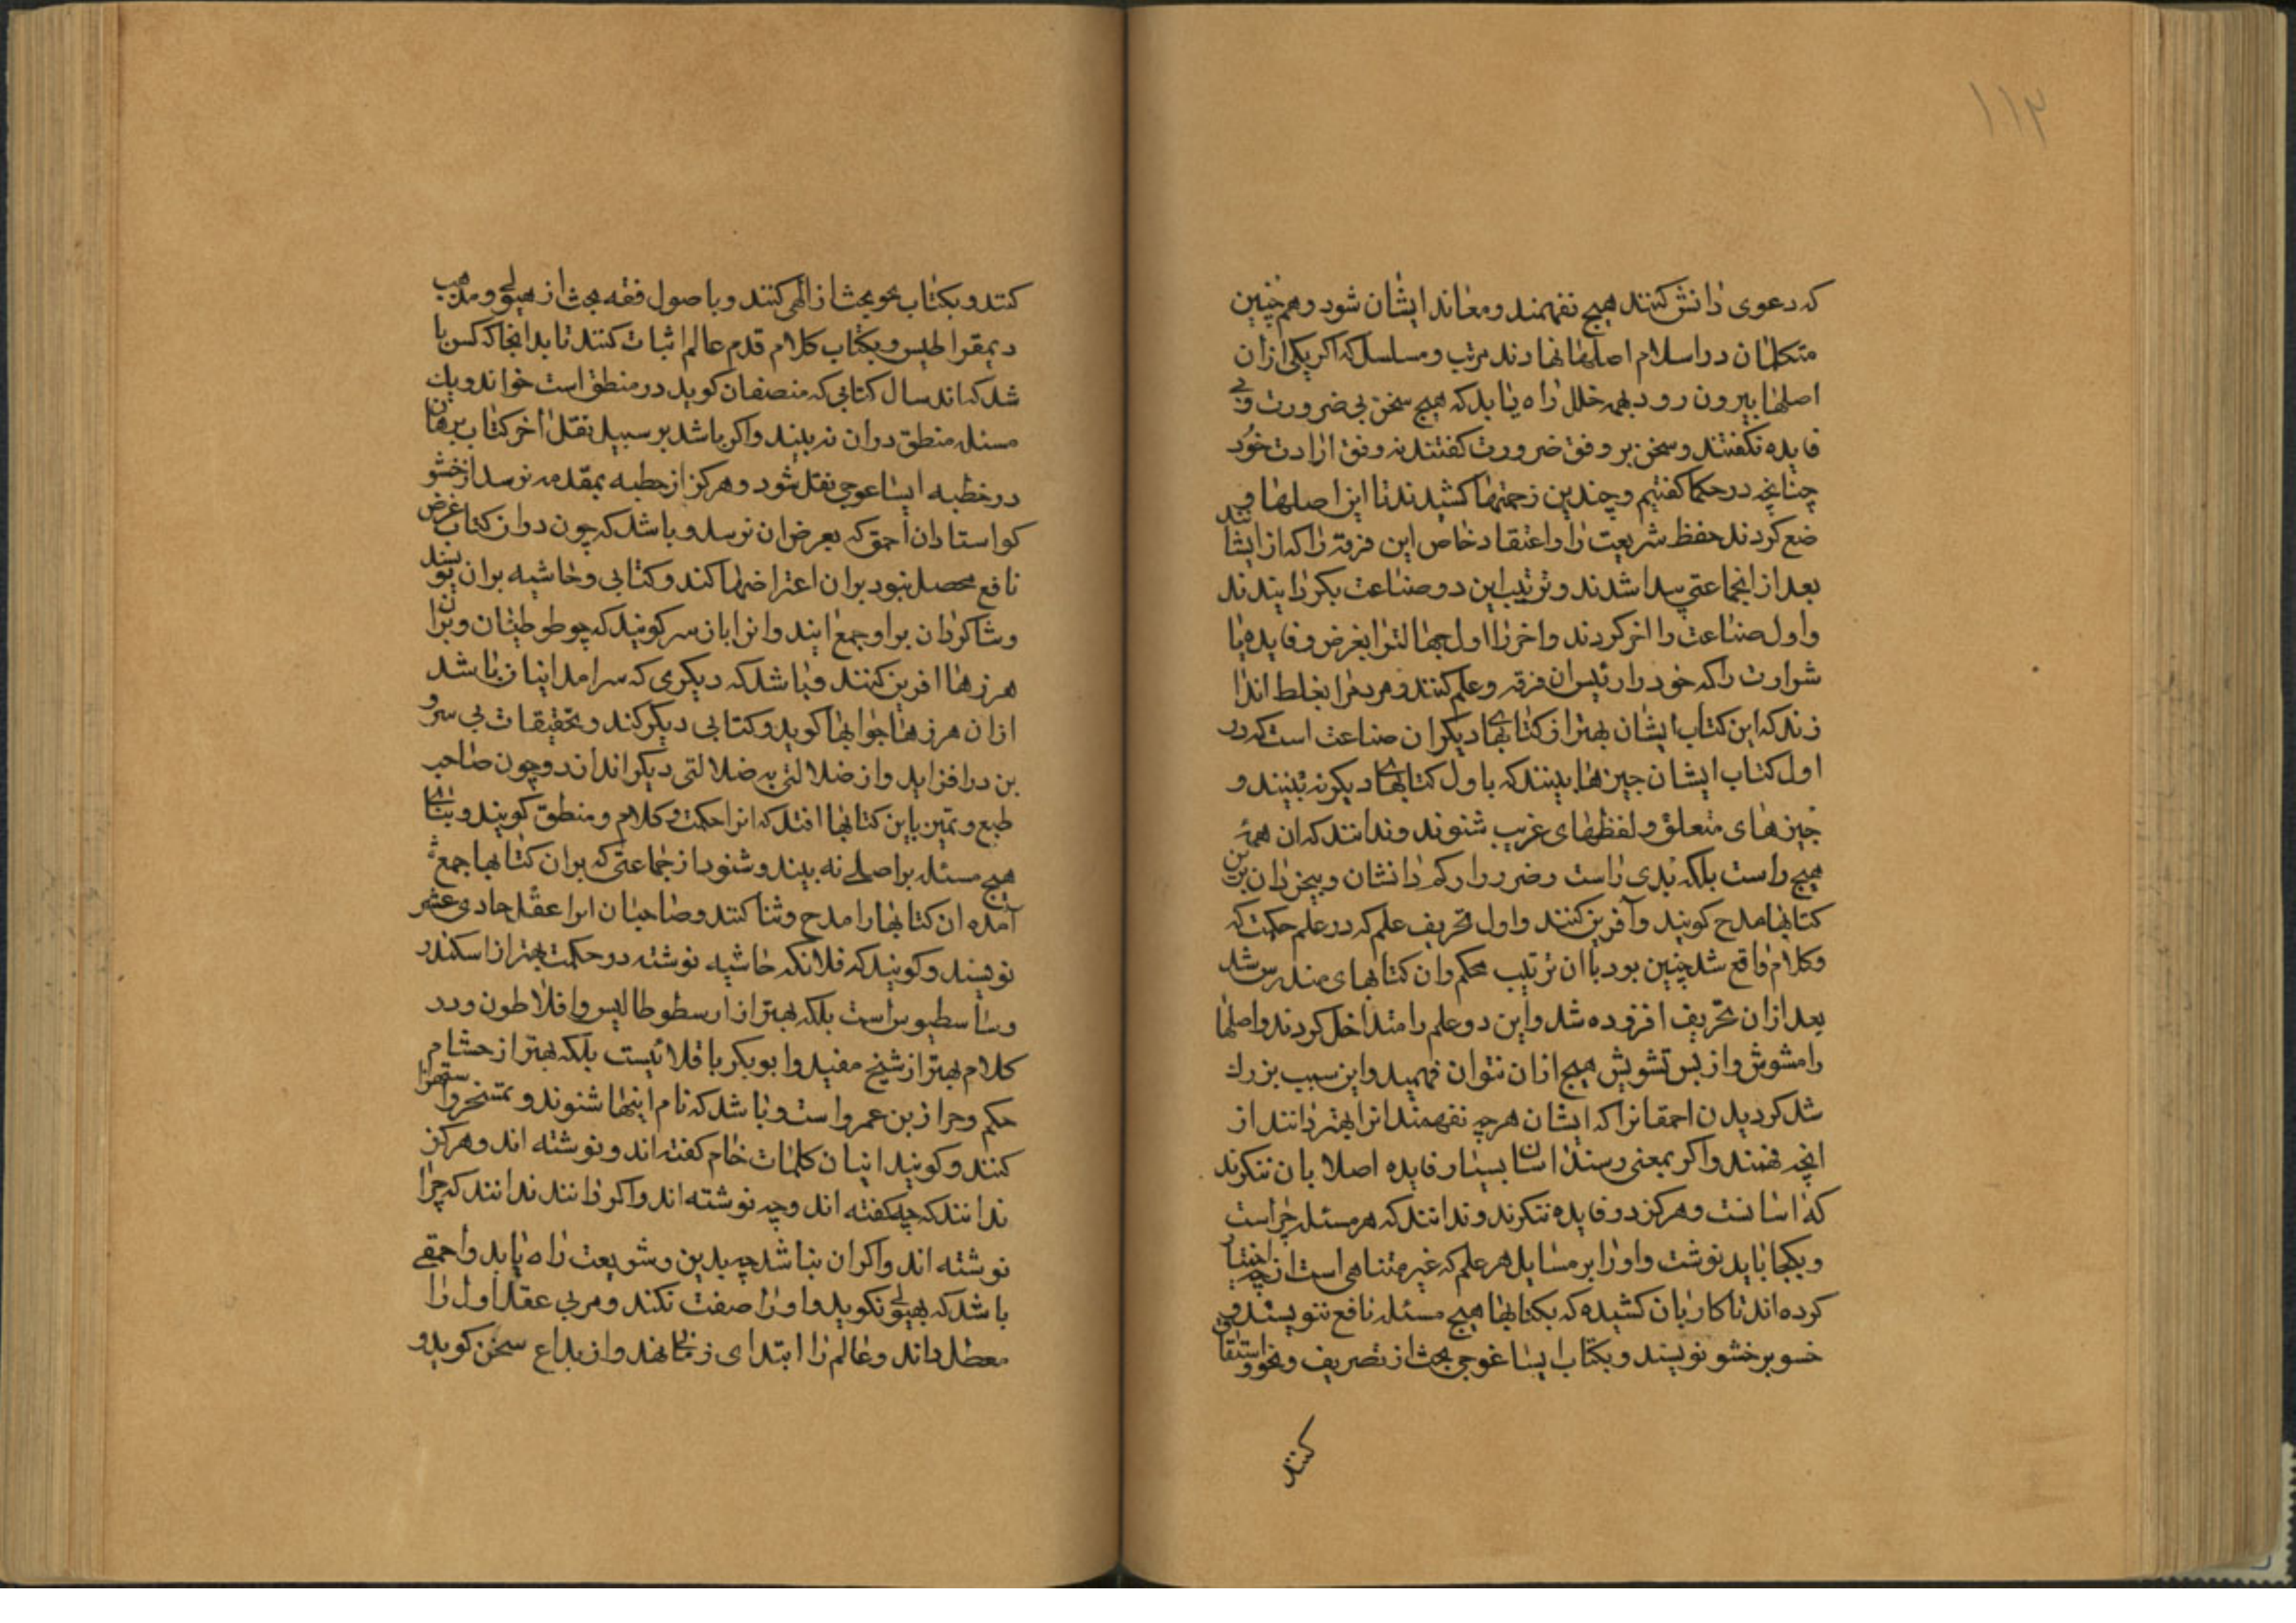 ١١٣
که دعوی دانش کنند هیچ نفهمند و معاند ایشان شود و همچنین
متکلمان در اسلام اصلها نهادند مرتب و مسلسل که اکر یکی از آن
اصلها بیرون رود بهمه خلل راه یابد که هیچ سخن بی ضرورت و بی
فایده نکفتند و سخن بر وفق ضرورت کفتند نه وفق ارادت خود
چنانچه در حکما کفتیم و چندین زحمتها کشیدند تا این اصلها و
ضع کردند حفظ شریعت را و اعتقاد خاص این فرقه را که از ایشا
بعد از آن جماعتی پیدا شدند و ترتیب این دو صناعت بکردانیدند
و اول صناعت را اخر کردند و اخر را اول جهالت را بغرض و فایده یا
شرارت را که خود را رئیس ان فرقه و علم کنند و مردم را بغلط اندا
زند که این کتاب ایشان بهتر از کتابهای دیکر ان صناعت است که در
اول کتاب ایشان چیزها بینند که باول کتابهای دیکر نه بینند و
چیزهای متعلق و لفظهای غریب شنوند و ندانند که ان همه
هیچ راست بلکه بدی راست و ضرر وارکم دانشان و بیخردان برین
کتابها مدح کویند و آفرین کنند و اول تحریف علم که در علم حکمت که
و کلام واقع شد چنین بود با ان ترتیب محکم و ان کتابهای مندرس شد
بعد از ان تحریف افزوده شد و این دو علم را متداخل کردند و اصلها
را مشوش و از بس تشویش هیچ از ان نتوان فهمید و این سبب بزرك
شد کردیدن احمقانرا که ایشان هرچه نفهمند انرا بهتر دانند از
انچه فهمند و اکر بمعنی رسند اسان بسیار فایده اصلا بان ننکرند
که اسانست و هرکز در فایده ننکرند و ندانند که هر مسئله چراست
و بکجا باید نوشت و او را بر مسایل هر علم که غیر متناهی است از چه اختیار
کرده اند تا کار بان کشیده که بکتابها هیچ مسئله نافع ننویسند و
حشو بر حشو نویسند و بکتاب ایساغوجی بحث از تصریف و نحو و اشتقاق
کنند
کنند و بکتاب نحو بحث از الهی کنند و باصول فقه بحث از هیولی و مذهب
دیمقراطیس و بکتاب کلام قدم عالم اثبات کنند تا بدانجا که کس با
شد که اند سال کتابی که منصفان کوید در منطق است خواند و یك
مسئله منطق در ان نه بیند و اکر باشد بر سبیل نقل اخر کتاب برهان
در خطبه ایساغوجی نقل شود و هرکز از خطبه بمقدمه نرسد از حشو
کو استادان احمق که بغرض ان نرسد و باشد که چون در ان کتاب غرض
نافع محصل نبود بر ان اعتراضها کند و کتابی و حاشیه بر ان نویسد
و شاکردان بر او جمع ایند و انرا باز سر کویند که چو طوطیان و بران
هرزها افرین کنند و باشد که دیکری که سرامد اینان باشد
از ان هرزها جوابها کوید و کتابی دیکر کند و تحقیقات بی سر و
بن در افزاید و از ضلالتی به ضلالتی دیکر اندازد و چون صاحب
طبع و تمیز باین کتابها افتد که انرا حکمت و کلام و منطق کویند و بنای
هیچ مسئله بر اصلی نه بیند و شنود از جماعتی که بر ان کتابها جمع
آمده ان کتابها را مدح و ثنا کنند و صاحبان انرا عقل حادی عشر
نویسند و کویند که فلانکه حاشیه نوشته در حکمت بهتر از اسکندر
و سأسطیوس است بلکه بهتر از ارسطوطالیس و افلاطون و در
کلام بهتر از شیخ مفید و ابوبکر باقلانیست بلکه بهتر از حشام
حکم و حرا ز بن عمرو است و باشد که نام اینها شنوند و تمسخر و استهزا
کنند و کویند اینان کلمات خام کفته اند و نوشته اند و هرکز
ندانند که چه کفته اند و چه نوشته اند و اکر دانند ندانند که چرا
نوشته اند و اکر ان نباشد چه بدین و شریعت راه یابد و احمقی
باشد که بهیولی نکوید و او را صفت نکند و مربی عقل اول را
معطل داند و عالم را ابتدای زمانی نهد و از بداع سخن کوید و